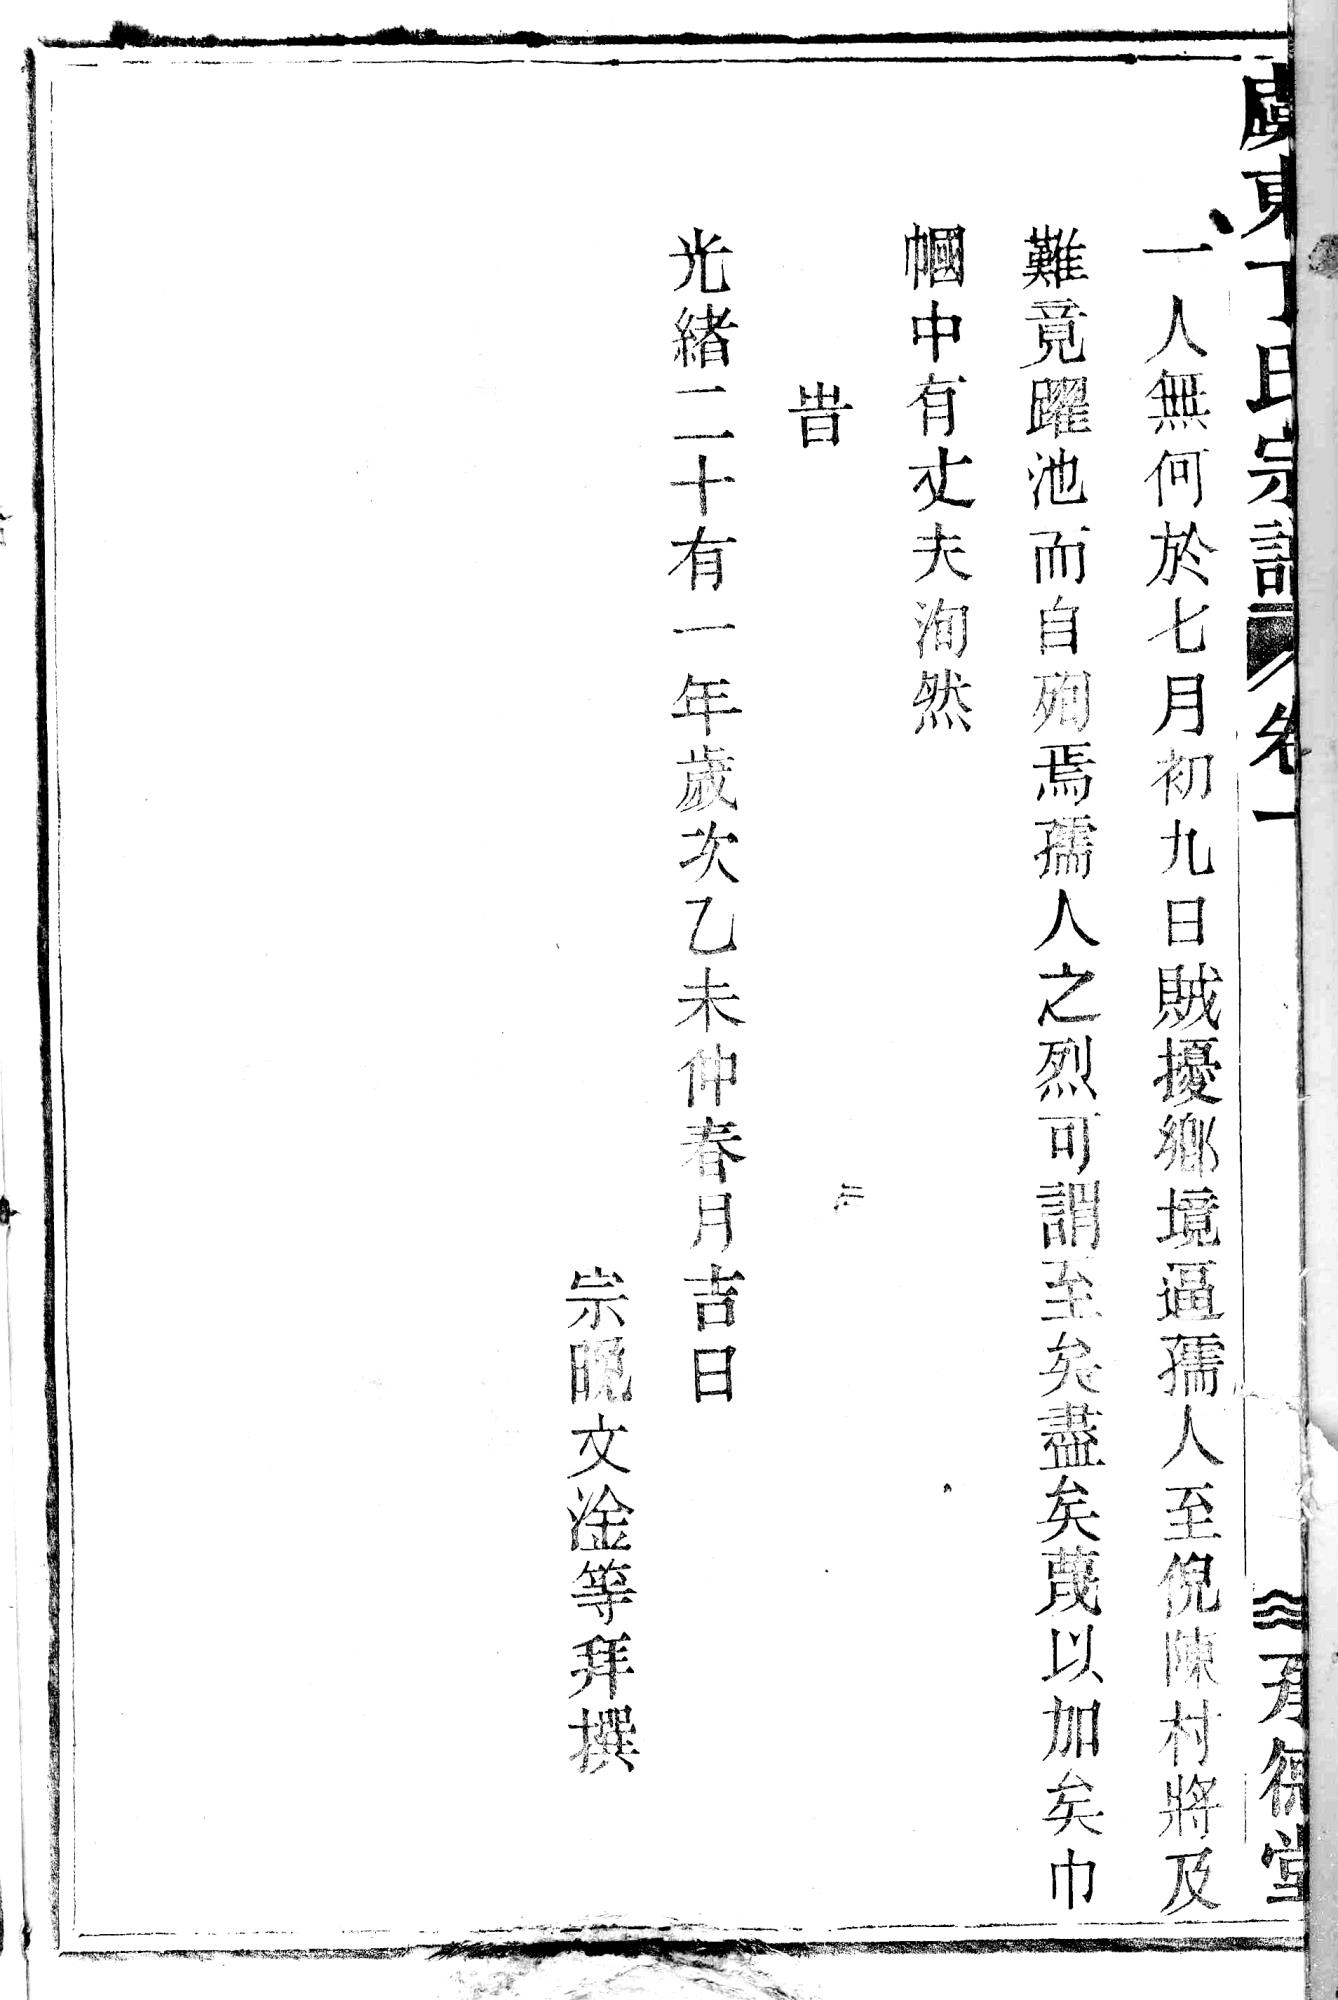 虞東丁氏宗譜 卷一 承德堂
一人無何於七月初九日賊擾鄉境逼孺人至倪陳村將及
難竟躍池而自殉焉孺人之烈可謂至矣盡矣蔑以加矣巾
幗中有丈夫洵然
旹
光緒二十有一年歲次乙未仲春月吉日
宗晚文淦等拜撰